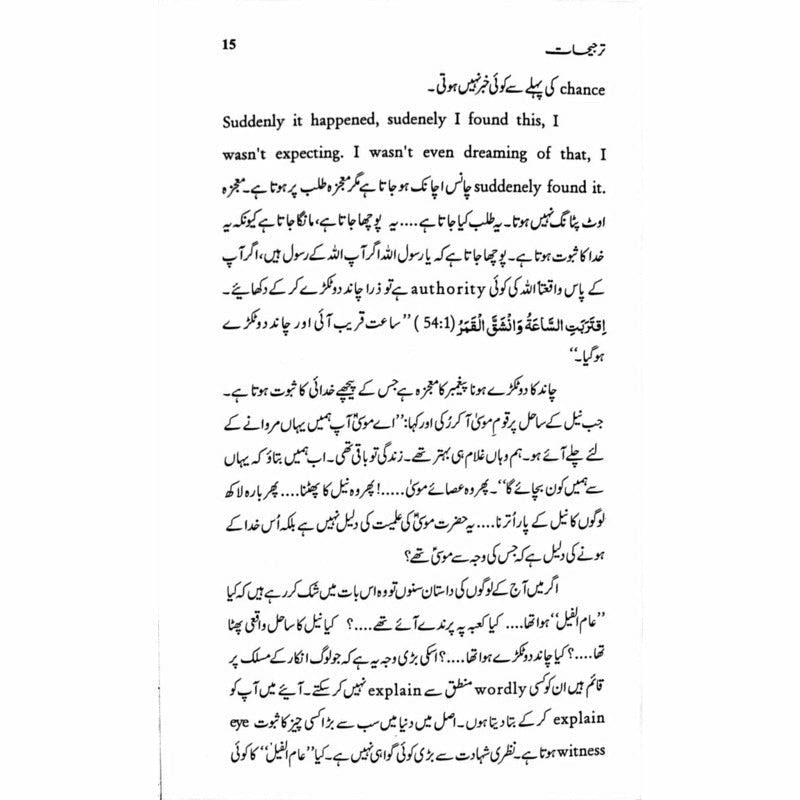 ترجیحات 15
chance کی پہلے سے کوئی خبر نہیں ہوتی۔
Suddenly it happened, sudenely I found this, I
wasn't expecting. I wasn't even dreaming of that, I
suddenely found it. چانس اچانک ہو جاتا ہے مگر معجزہ طلب پر ہوتا ہے۔ معجزہ
اوٹ پٹانگ نہیں ہوتا۔ یہ طلب کیا جاتا ہے.... یہ پوچھا جاتا ہے، مانگا جاتا ہے کیونکہ یہ
خدا کا ثبوت ہوتا ہے۔ پوچھا جاتا ہے کہ یا رسول اللہ اگر آپ اللہ کے رسول ہیں، اگر آپ
کے پاس واقعتاً اللہ کی کوئی authority ہے تو ذرا چاند دو ٹکڑے کر کے دکھائیے۔
اِقتَرَبَتِ السَّاعَةُ وَانْشَقَّ الْقَمَرُ (54:1) ’’ساعت قریب آئی اور چاند دو ٹکڑے
ہو گیا۔‘‘
چاند کا دو ٹکڑے ہونا پیغمبر کا معجزہ ہے جس کے پیچھے خدائی کا ثبوت ہوتا ہے۔
جب نیل کے ساحل پر قومِ موسیٰ آ کر رُکی اور کہا: ’’اے موسیٰؑ آپ ہمیں یہاں مروانے کے
لئے چلے آئے ہو۔ ہم وہاں غلام ہی بہتر تھے۔ زندگی تو باقی تھی۔ اب ہمیں بتاؤ کہ یہاں
سے ہمیں کون بچائے گا‘‘۔ پھر وہ عصائے موسیٰ.....! پھر وہ نیل کا پھٹنا.... پھر بارہ لاکھ
لوگوں کا نیل کے پار اُترنا.... یہ حضرت موسیٰؑ کی علمیت کی دلیل نہیں ہے بلکہ اُس خدا کے
ہونے کی دلیل ہے کہ جس کی وجہ سے موسیٰؑ تھے؟
اگر میں آج کے لوگوں کی داستان سنوں تو وہ اس بات میں شک کر رہے ہیں کہ کیا
’’عام الفیل‘‘ ہوا تھا.... کیا کعبہ پہ پرندے آئے تھے....؟ کیا نیل کا ساحل واقعی پھٹا
تھا....؟ کیا چاند دو ٹکڑے ہوا تھا....؟ اسکی بڑی وجہ یہ ہے کہ جو لوگ انکار کے مسلک پر
قائم ہیں ان کو کسی wordly منطق سے explain نہیں کر سکتے۔ آیئے میں آپ کو
explain کر کے بتا دیتا ہوں۔ اصل میں دنیا میں سب سے بڑا کسی چیز کا ثبوت eye
witness ہوتا ہے۔ نظری شہادت سے بڑی کوئی گواہی نہیں ہے۔ کیا ’’عام الفیل‘‘ کا کوئی